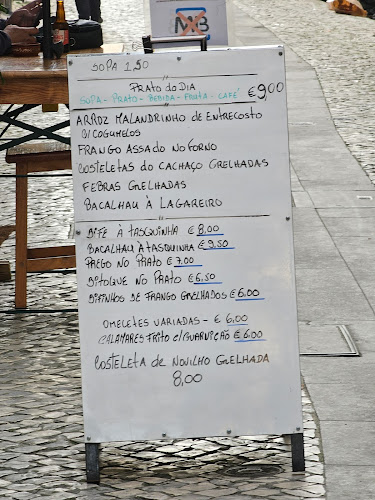 SOPA 1,50
PRATO DO DIA
SOPA - PRATO - BEBIDA - FRUTA - CAFÉ €9,00
ARROZ MALANDRINHO DE ENTRECOSTO
C/COGUMELOS
FRANGO ASSADO NO FORNO
COSTELETAS DO CACHAÇO GRELHADAS
FEBRAS GRELHADAS
BACALHAU À LAGAREIRO
BIFE À TASQUINHA € 8,00
BACALHAU À TASQUINHA €9,50
PREGO NO PRATO € 7,00
BITOQUE NO PRATO € 6,50
BIFINHOS DE FRANGO GRELHADOS € 6,00
OMELETES VARIADAS - € 6,00
CALAMARES FRITO C/GUARNIÇÃO € 6,00
COSTELETA DE NOVILHO GRELHADA
8,00